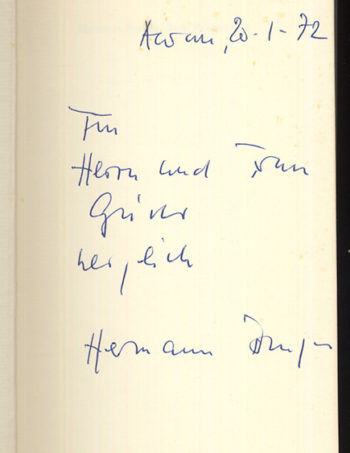 Aswan, 20-1-72
Für
Herrn und Frau
herzlich
Hermann